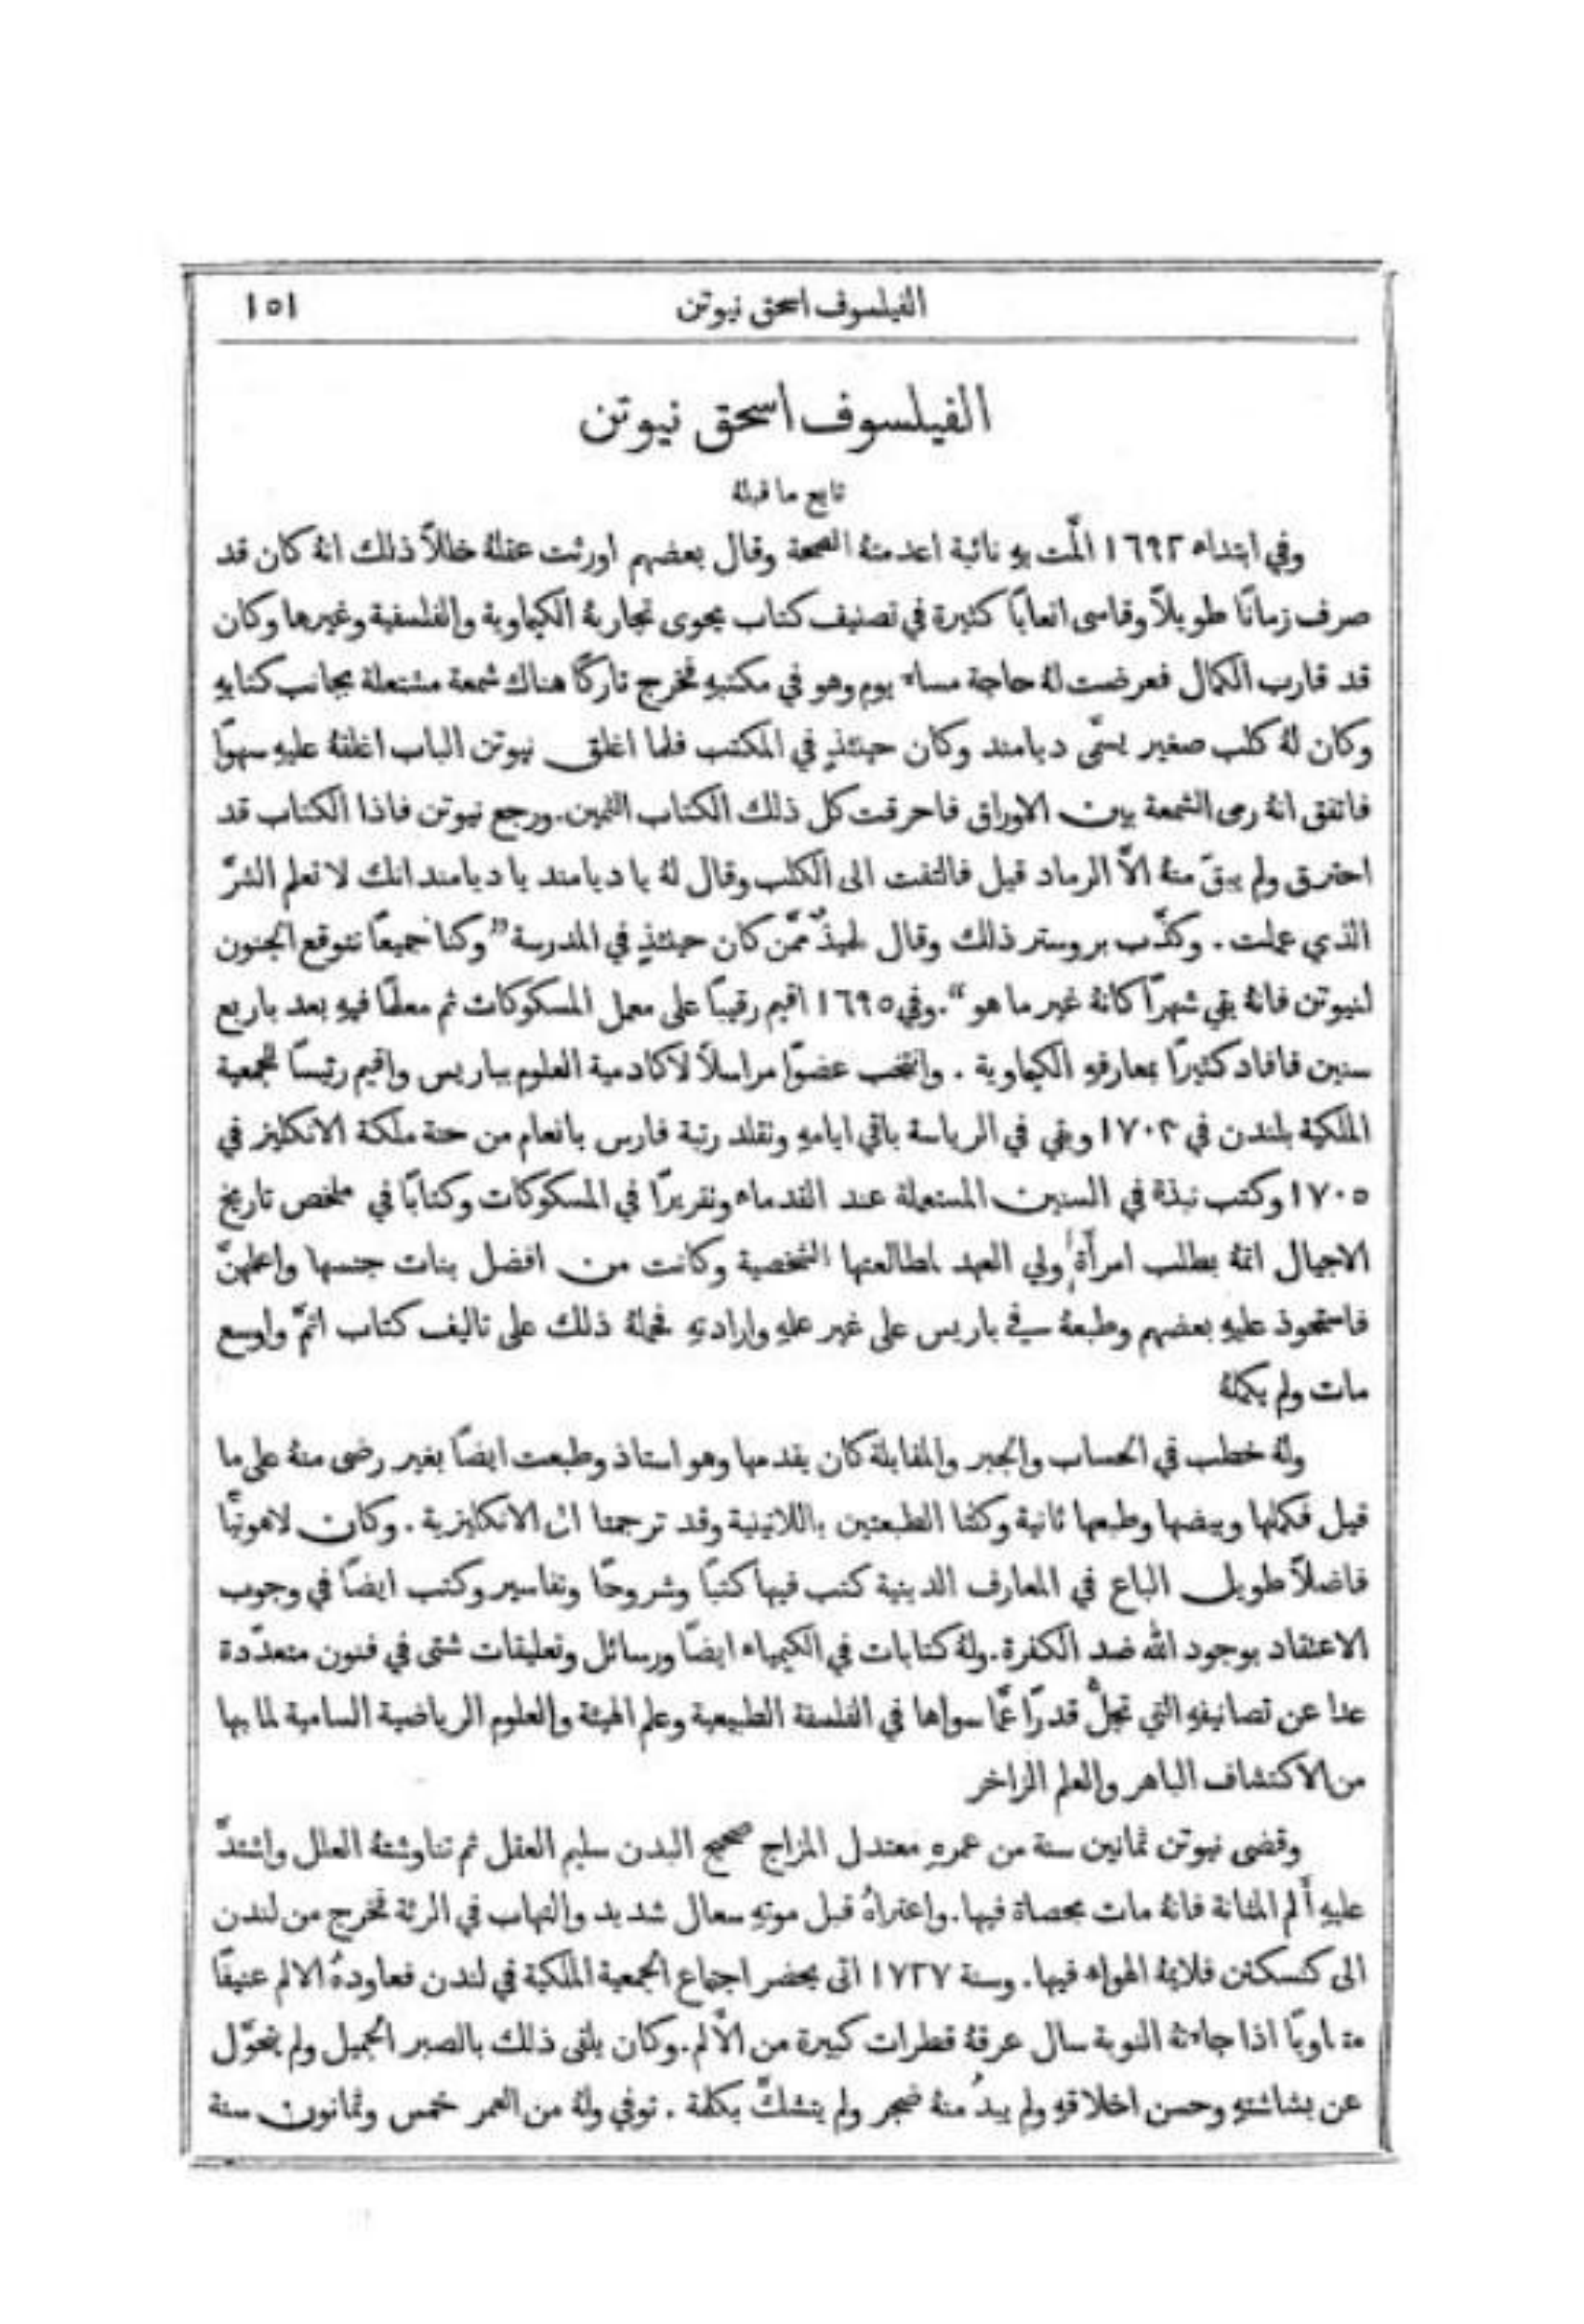 الفيلسوف اسحق نيوتن ١٥١
الفيلسوف اسحق نيوتن
تابع ما قبلهُ
وفي ابتداء ١٦٩٢ المَّت بهِ نائبة اعدمتهُ الصحة وقال بعضهم اورثت عقلهُ خللاً ذلك انهُ كان قد
صرف زمانًا طويلاً وقاسى اتعابًا كثيرة في تصنيف كتاب يحوى تجاربهُ الكيماوية والفلسفية وغيرها وكان
قد قارب الكمال فعرضت لهُ حاجة مساء يوم وهو في مكتبهِ فخرج تاركًا هناك شمعة مشتعلة بجانب كتابهِ
وكان لهُ كلب صغير يسمَّى ديامند وكان حينئذٍ في المكتب فلما اغلق نيوتن الباب اغلقهُ عليهِ سهوًا
فاتفق انهُ رمى الشمعة بين الاوراق فاحرقت كل ذلك الكتاب الثمين. ورجع نيوتن فاذا الكتاب قد
احترق ولم يبقَ منهُ الَّا الرماد قيل فالتفت الى الكلب وقال لهُ يا ديامند يا ديامند انك لا تعلم الشرَّ
الذي عملت. وكذَّب بروستر ذلك وقال تلميذٌ ممَّن كان حينئذٍ في المدرسة ”وكنا جميعًا نتوقع الجنون
لنيوتن فانهُ بقي شهرًا كانهُ غير ما هو“. وفي ١٦٩٥ اقيم رقيبًا على معمل المسكوكات ثم معلمًا فيهِ بعد باربع
سنين فافاد كثيرًا بمعارفهِ الكيماوية. وانتخب عضوًا مراسلاً لاكادمية العلوم بباريس واقيم رئيسًا للجمعية
الملكية بلندن في ١٧٠٣ وبقي في الرياسة باقي ايامهِ وتقلد رتبة فارس بانعام من حنة ملكة الانكليز في
١٧٠٥ وكتب نبذة في السنين المستعملة عند القدماء وتقريرًا في المسكوكات وكتابًا في ملخص تاريخ
الاجيال اتمَّهُ بطلب امرأة ولي العهد لمطالعتها الشخصية وكانت من افضل بنات جنسها واعلمهنَّ
فاستحوذ عليهِ بعضهم وطبعهُ في باريس على غير علمهِ وارادتهِ فحملهُ ذلك على تاليف كتاب اتمَّ واوسع
مات ولم يكملهُ
ولهُ خطب في الحساب والجبر والمقابلة كان يقدمها وهو استاذ وطبعت ايضًا بغير رضى منهُ على ما
قيل فكملها وبيضها وطبعها ثانية وكلتا الطبعتين باللاتينية وقد ترجمتا الى الانكليزية. وكان لاهوتيًّا
فاضلاً طويل الباع في المعارف الدينية كتب فيها كتبًا وشروحًا وتفاسير وكتب ايضًا في وجوب
الاعتقاد بوجود الله ضد الكفرة. ولهُ كتابات في الكيمياء ايضًا ورسائل وتعليقات شتى في فنون متعدّدة
عدا عن تصانيفهِ التي تجلُّ قدرًا عمَّا سواها في الفلسفة الطبيعية وعلم الهيئة والعلوم الرياضية السامية لما بها
من الاكتشاف الباهر والعلم الزاخر
وقضى نيوتن ثمانين سنة من عمرهِ معتدل المزاج صحيح البدن سليم العقل ثم تناوشتهُ العلل واشتدَّ
عليهِ أَلم المثانة فانهُ مات بحصاة فيها. واعتراهُ قبل موتهِ سعال شديد والتهاب في الرئة فخرج من لندن
الى كنسكتن فلايمهُ الهواء فيها. وسنة ١٧٢٧ اتى يحضر اجتماع الجمعية الملكية في لندن فعاودهُ الالم عنيفًا
متناوبًا اذا جاءتهُ النوبة سال عرقهُ قطرات كبيرة من الأَلم. وكان يلقى ذلك بالصبر الجميل ولم يتحوَّل
عن بشاشتهِ وحسن اخلاقهِ ولم يبدُ منهُ ضجر ولم يتشكَّ بكلمة. توفي ولهُ من العمر خمس وثمانون سنة